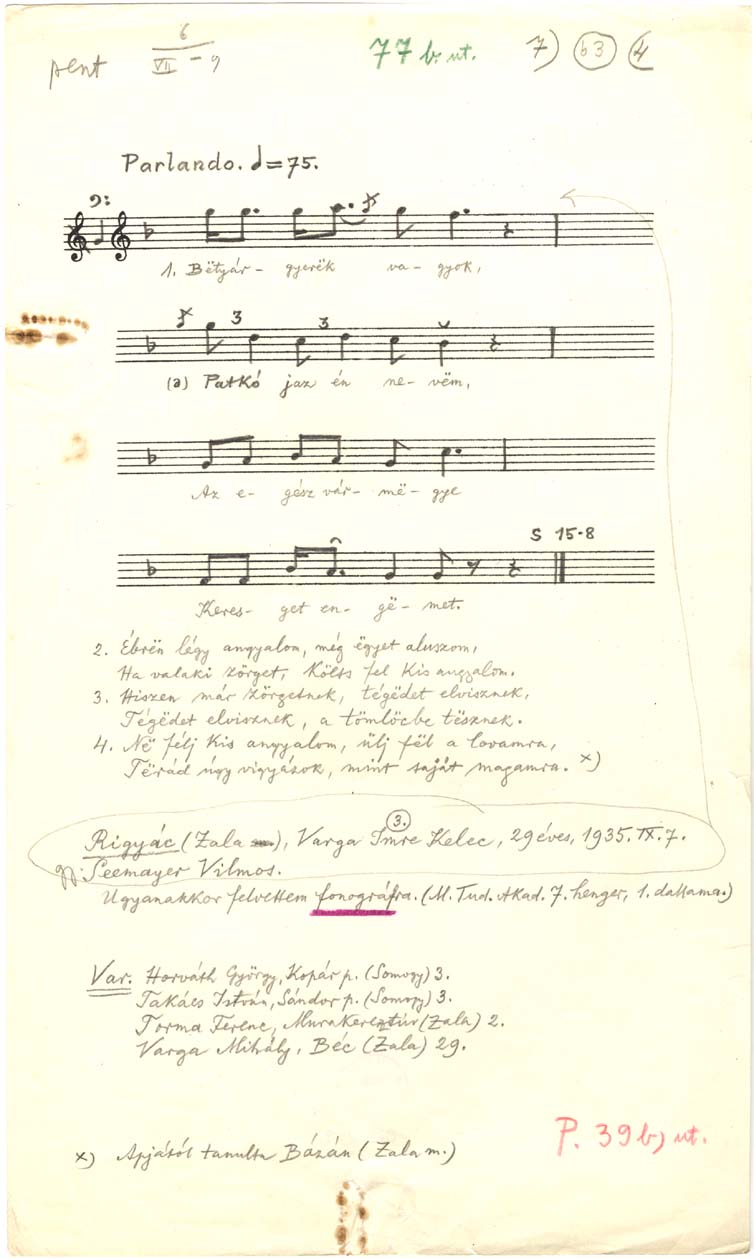 pent 6 VII - 9 77 b. ut. 7) b3 4
Parlando. = 75.
1. Bëtyár- gyerëk va- gyok,
3 3
(a) Patkó jaz én ne- vëm,
Az e- gész vár- më- gye
S 15-8
Keres- get en- gë- met.
2. Ébrën légy angyalom, még ëgyet aluszom,
Ha valaki zörget, költs fel kis angyalom.
3. Hiszen már zörgetnek, tégëdet elvisznek,
Tégëdet elvisznek, a tömlöcbe tësznek.
4. Në félj kis angyalom, ülj fël a lovamra,
Tërád úgy vigyázok, mint saját magamra. x)
3.
Rigyác (Zala), Varga Imre Kelec, 29 éves, 1935. IX. 7.
gy: Seemayer Vilmos.
Ugyanakkor felvettem fonográfra. (M. Tud. Akad. 7. henger, 1. dallama.)
Var. Horváth György, Kopár p. (Somogy) 3.
Takács István, Sándor p. (Somogy) 3.
Torma Ferenc, Murakeresztúr (Zala) 2.
Varga Mihály, Béc (Zala) 29.
P. 39 b) ut.
x) Apjától tanulta Bázán (Zala m.)